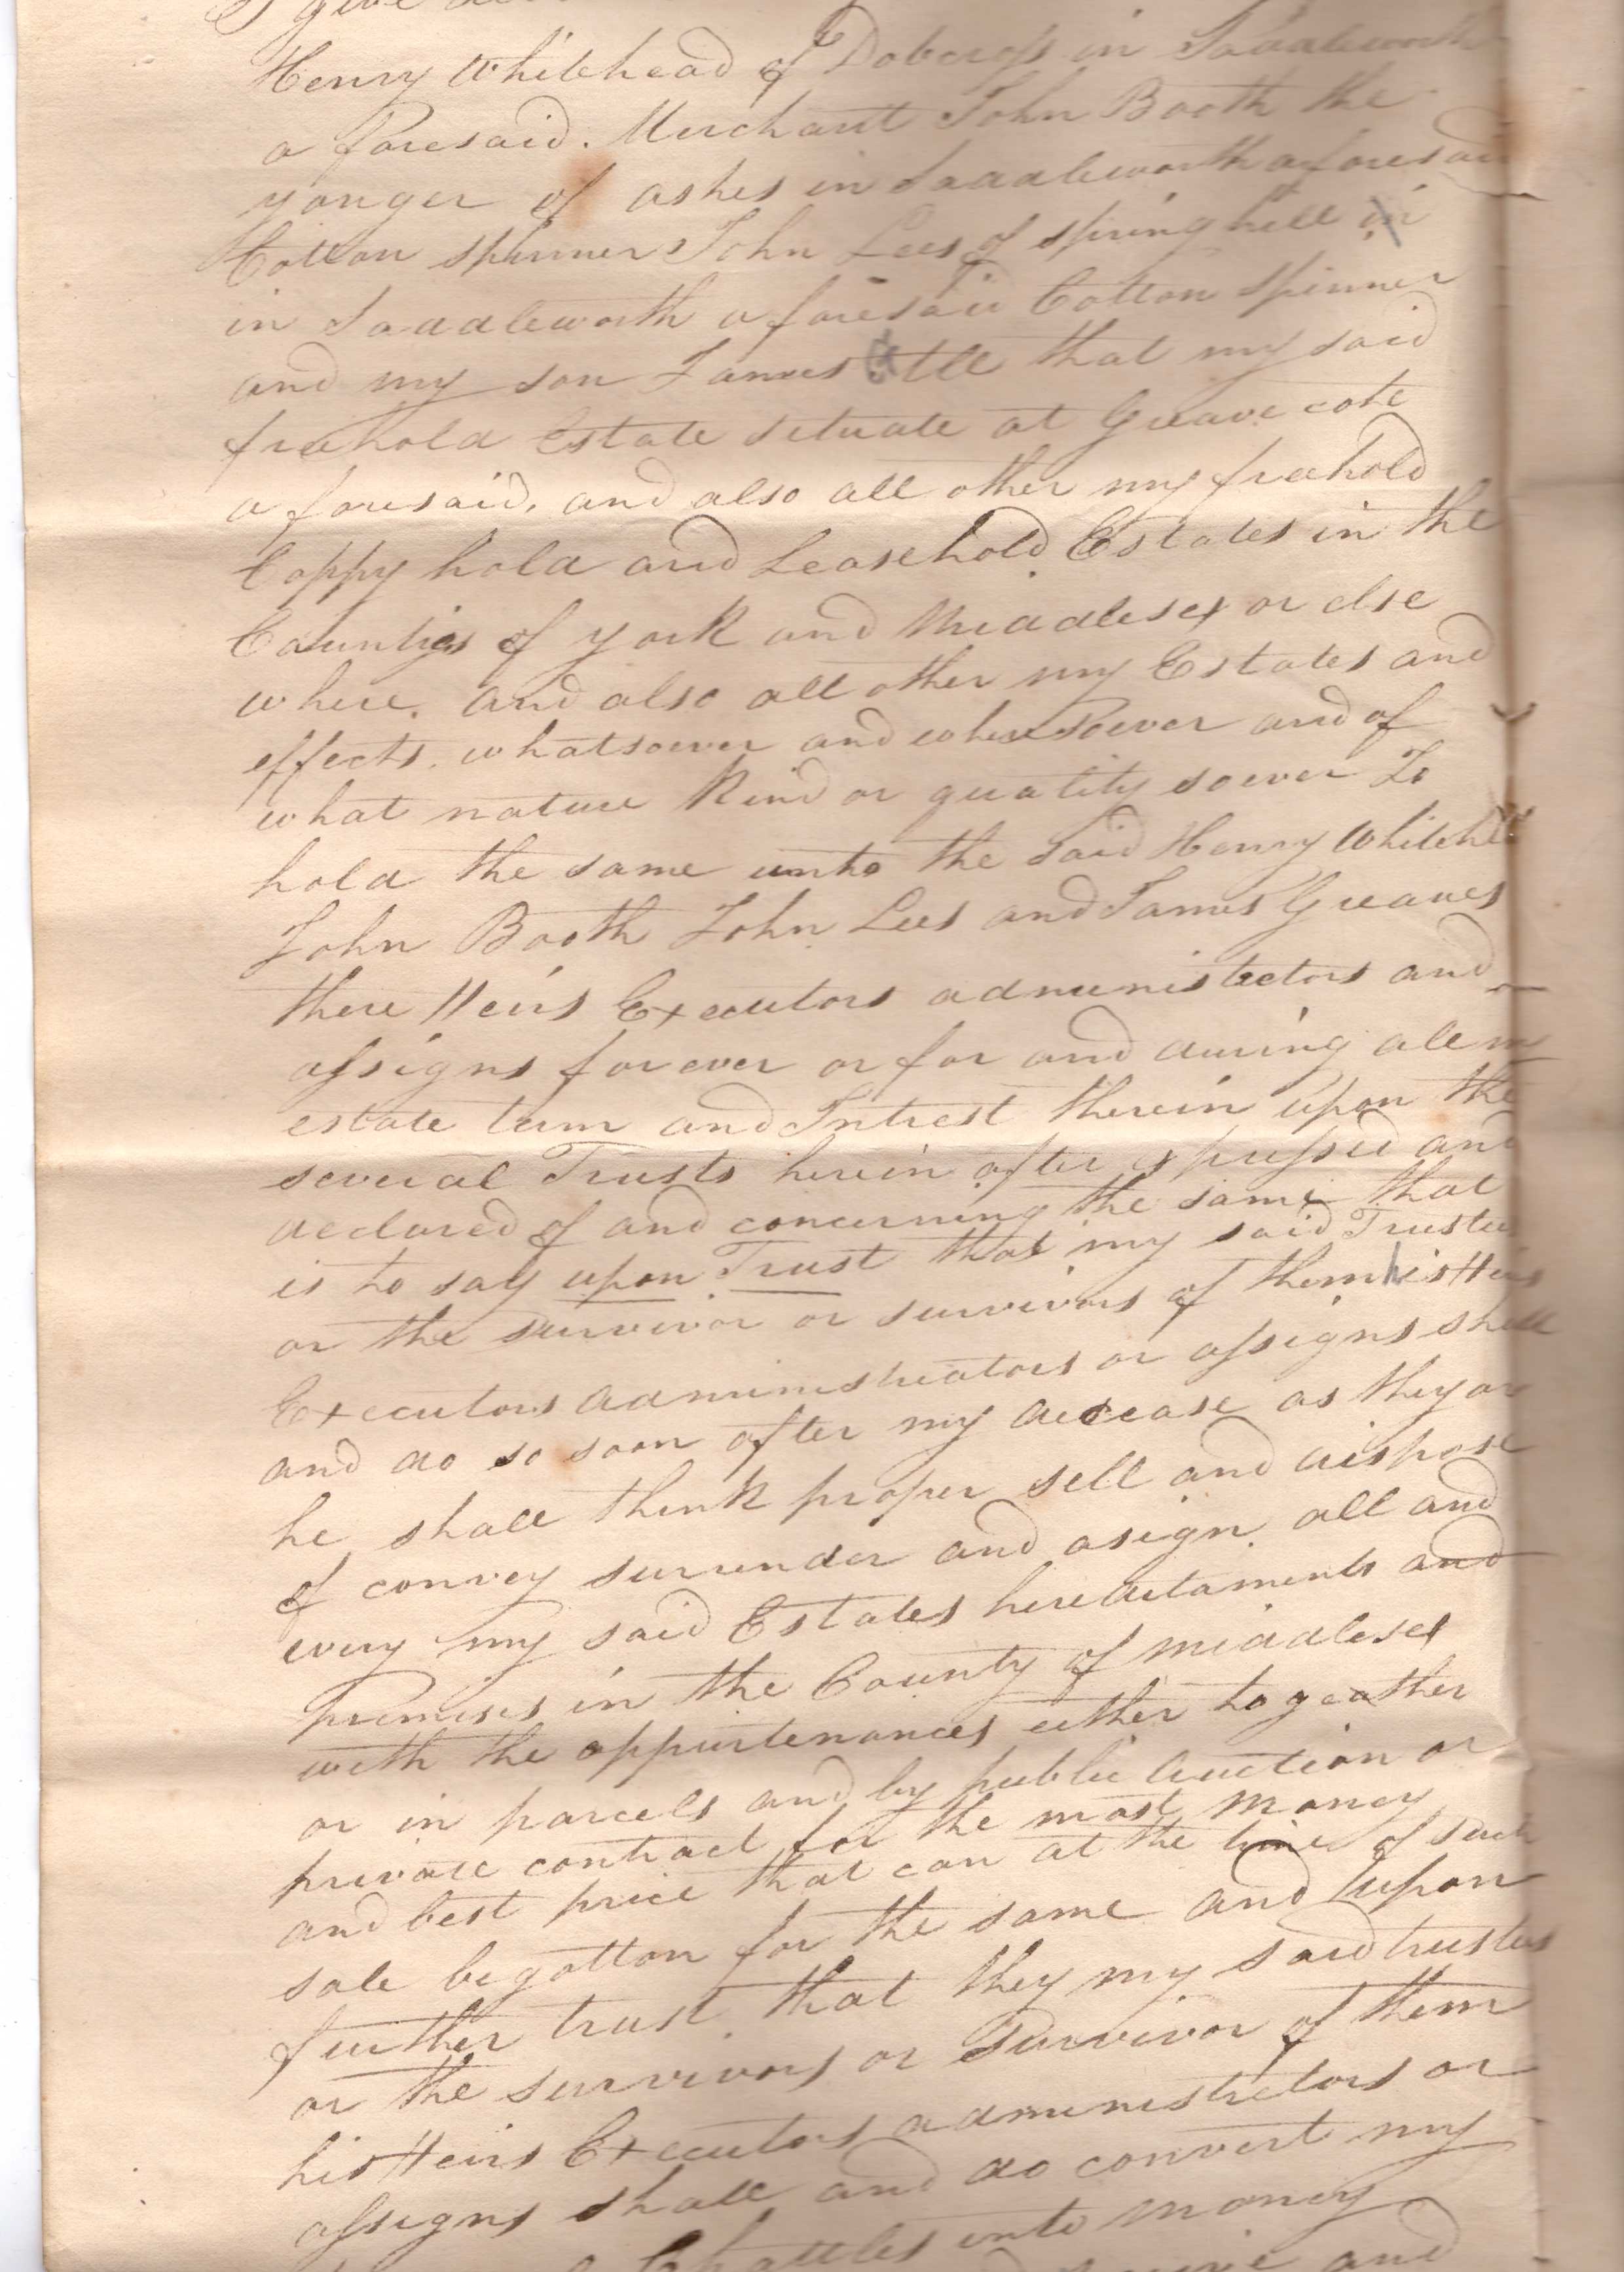 I give
Henry Whitehead of Dobcross in Saddleworth
a foresaid. Merchant John Booth the
yonger of ashes in Saddleworth aforesaid
Cotton spinner John Lees of springhill in
in Saddleworth a foresaid Cotton Spinner
and my son James All that my said
freehold Estate situate at Greave cote
a foresaid, and also all other my freehold
Coppy hold and Leasehold Estates in the
Countys of york and Middlesex or else
where. and also all other my Estates and
effects. whatsoever and wheresoever and of
what nature Kind or quality soever To
hold the same unto the Said Henry Whitehe
John Booth John Lees and James Greaves
there Heirs Executors administectors and
assigns for ever or for and during all m
estate term and Intrest therein upon the
several Trusts herein after expressed and
declared of and concerning the same that
is to say upon Trust that my said Trustees
or the survivor or survivors of them his Heirs
Executors administrators or assigns shall
and do so soon after my decease as they or
he shall think proper sell and dispose
of convey surrender and asign all and
every my said Estates heredataments and
Premises in the County of middlesex
with the appurtenances either togeather
or in parcels and by public Auction or
private contract for the most money
and best price that can at the time of such
sale be gotton for the same and Upon
further trust that they my said trustees
or the survivors or Survivor of them
his Heirs Executors administretors or
assigns shall and do convert my
Chattles into money
and